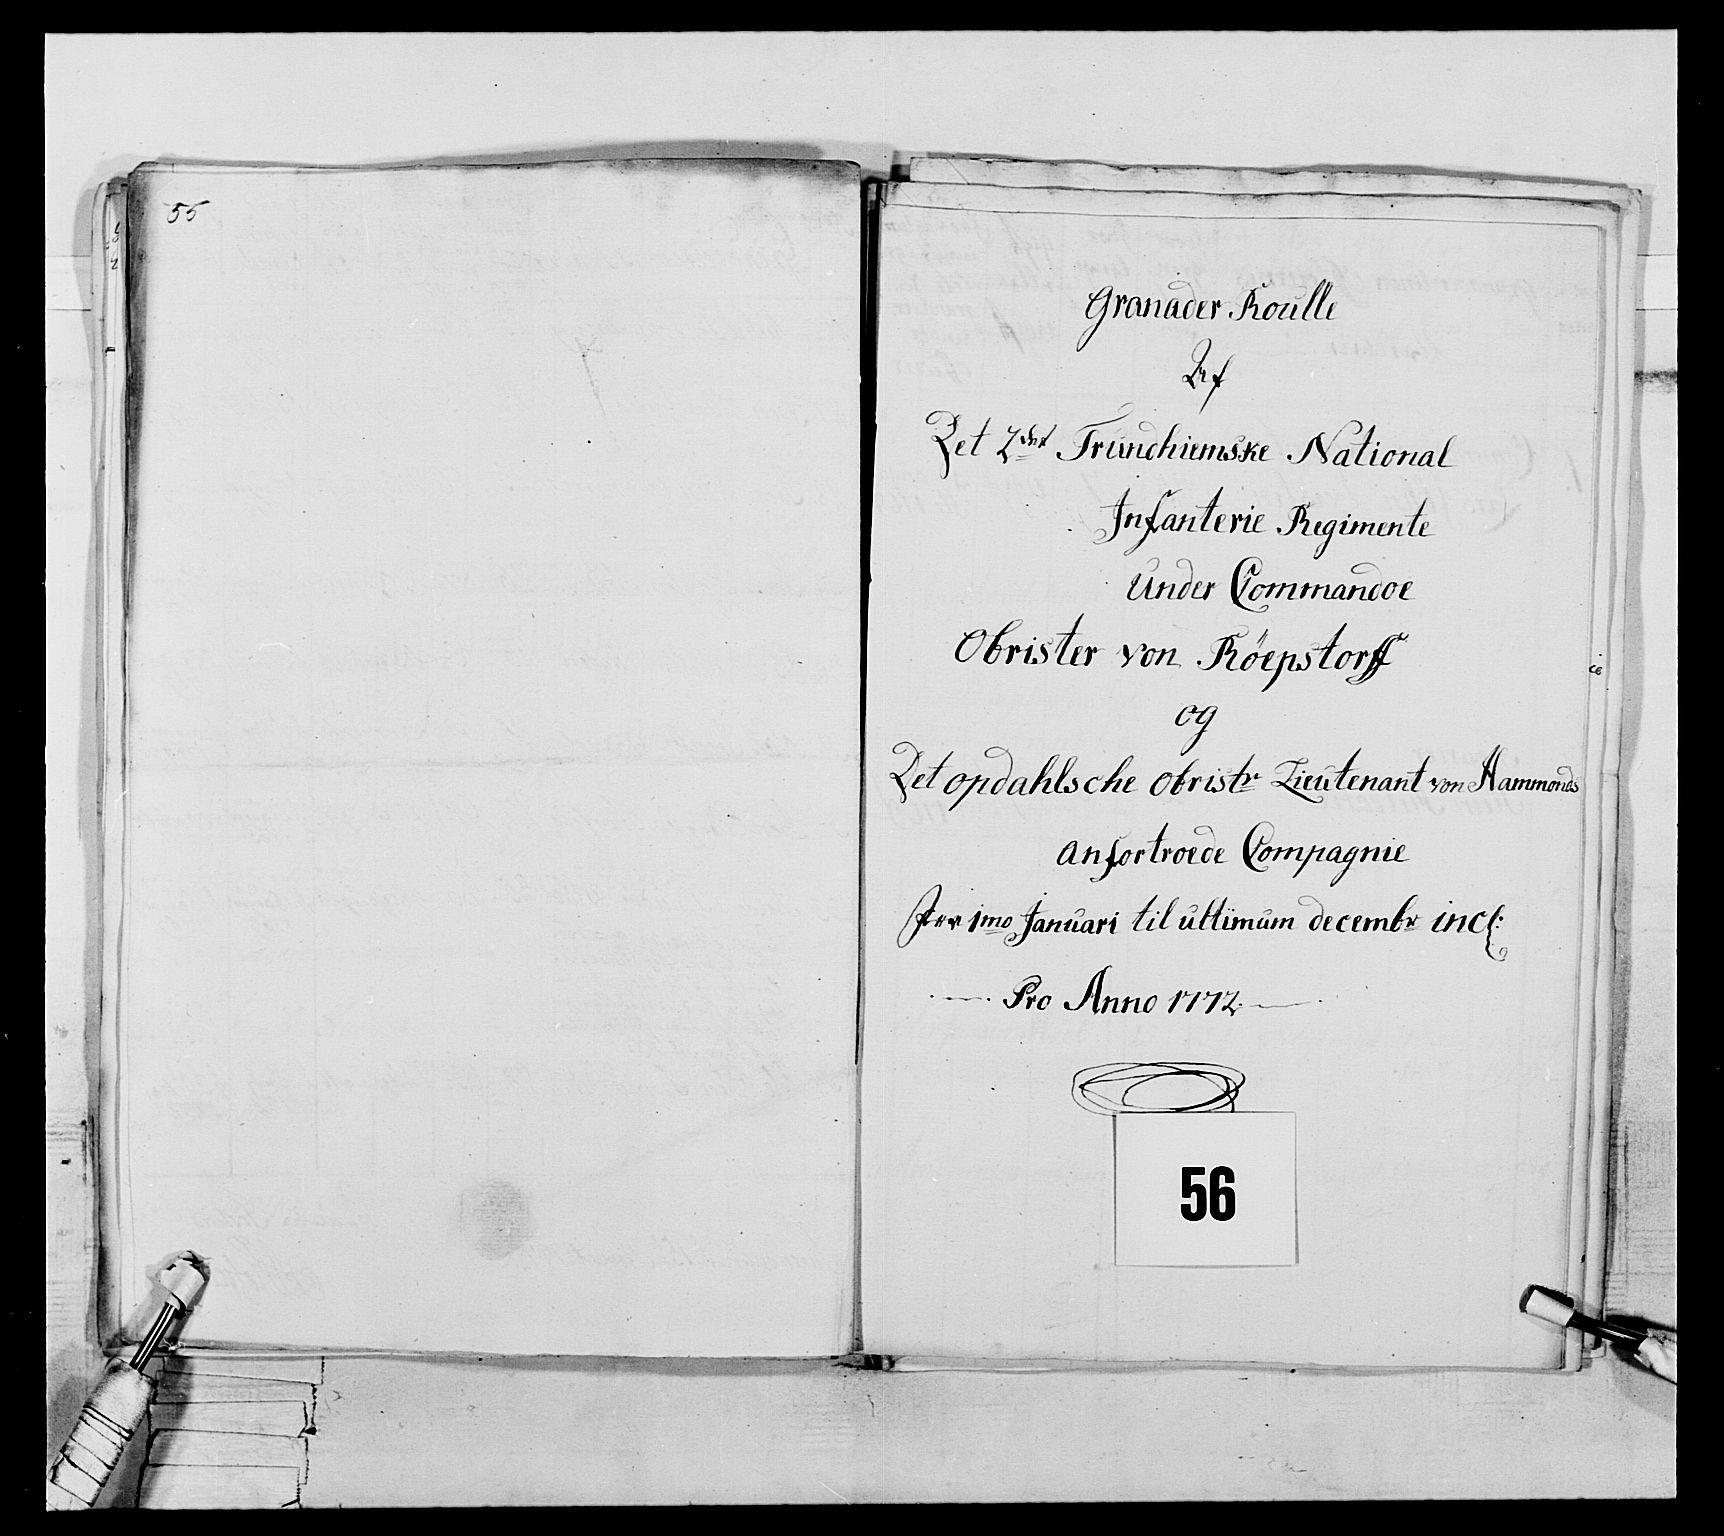 55
Granader Roulle
Af
Det 2det Trundhiemske National
Infanterie Regimente
Under Commandoe
Obrister von Röepstorff
og
Det Opdahlsche Obristr Lieutenant von Hammonds
anfortroede Compagnie
Per 1mo Januari til ultimum decembr incl:
Pro Anno 1772.
56